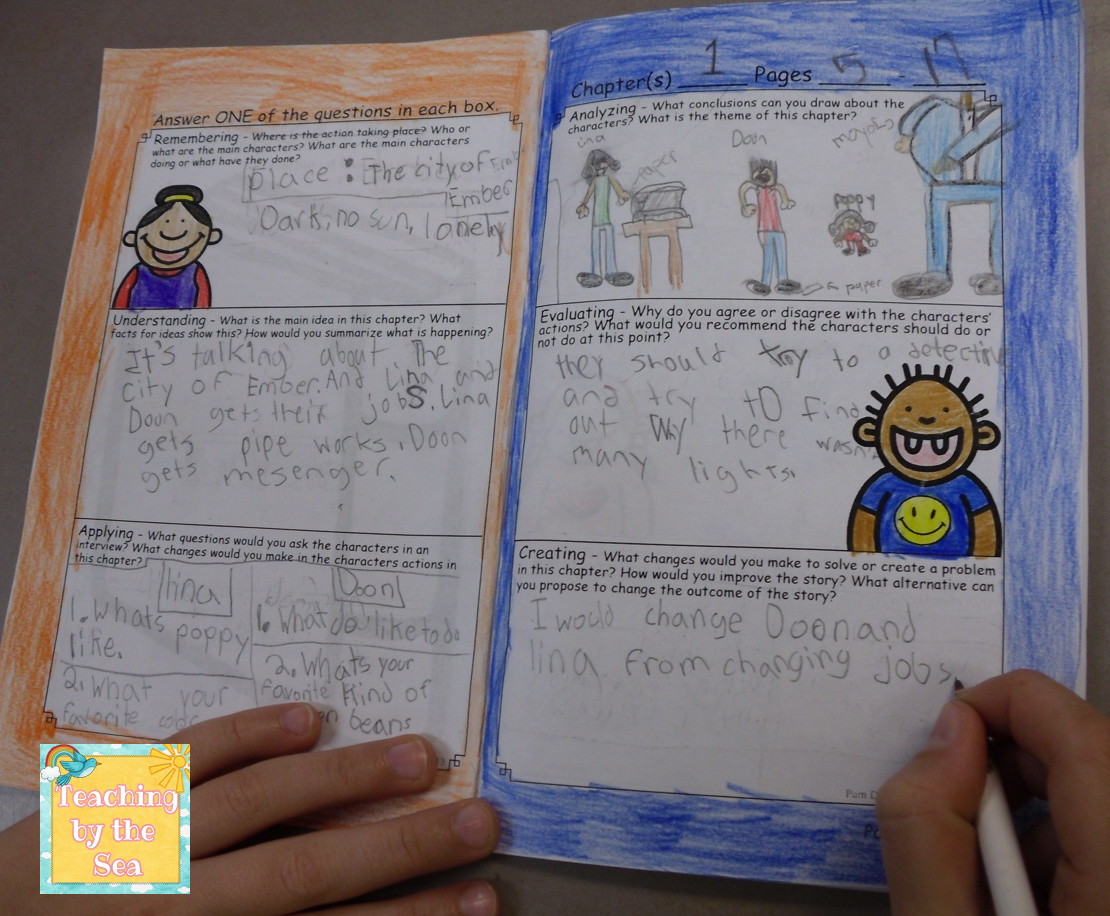 Answer ONE of the questions in each box.
Remembering - Where is the action taking place? Who or
what are the main characters? What are the main characters
doing or what have they done?
place : The city of
Ember
Dark, no sun, lonely
Understanding - What is the main idea in this chapter? What
facts for ideas show this? How would you summarize what is happening?
It's talking about The
city of Ember. And Lina and
Doon gets their jobs. Lina
gets pipe works. Doon
gets mesenger.
Applying - What questions would you ask the characters in an
interview? What changes would you make in the characters actions in
this chapter?
lina
1. whats poppy
like.
2. what your
favorite
Doon
1. What do like to do
2. Whats your
favorite kind of
beans
Chapter(s) 1 Pages 5 - 17
Analyzing - What conclusions can you draw about the
characters? What is the theme of this chapter?
lina
paper
Doon
poppy
mayor
paper
Evaluating - Why do you agree or disagree with the characters'
actions? What would you recommend the characters should do or
not do at this point?
they should try to a detective
and try to find
out why there wasn't
many lights.
Creating - What changes would you make to solve or create a problem
in this chapter? How would you improve the story? What alternative can
you propose to change the outcome of the story?
I would change Doon and
lina from changing jobs
Pam
Teaching
by the
Sea